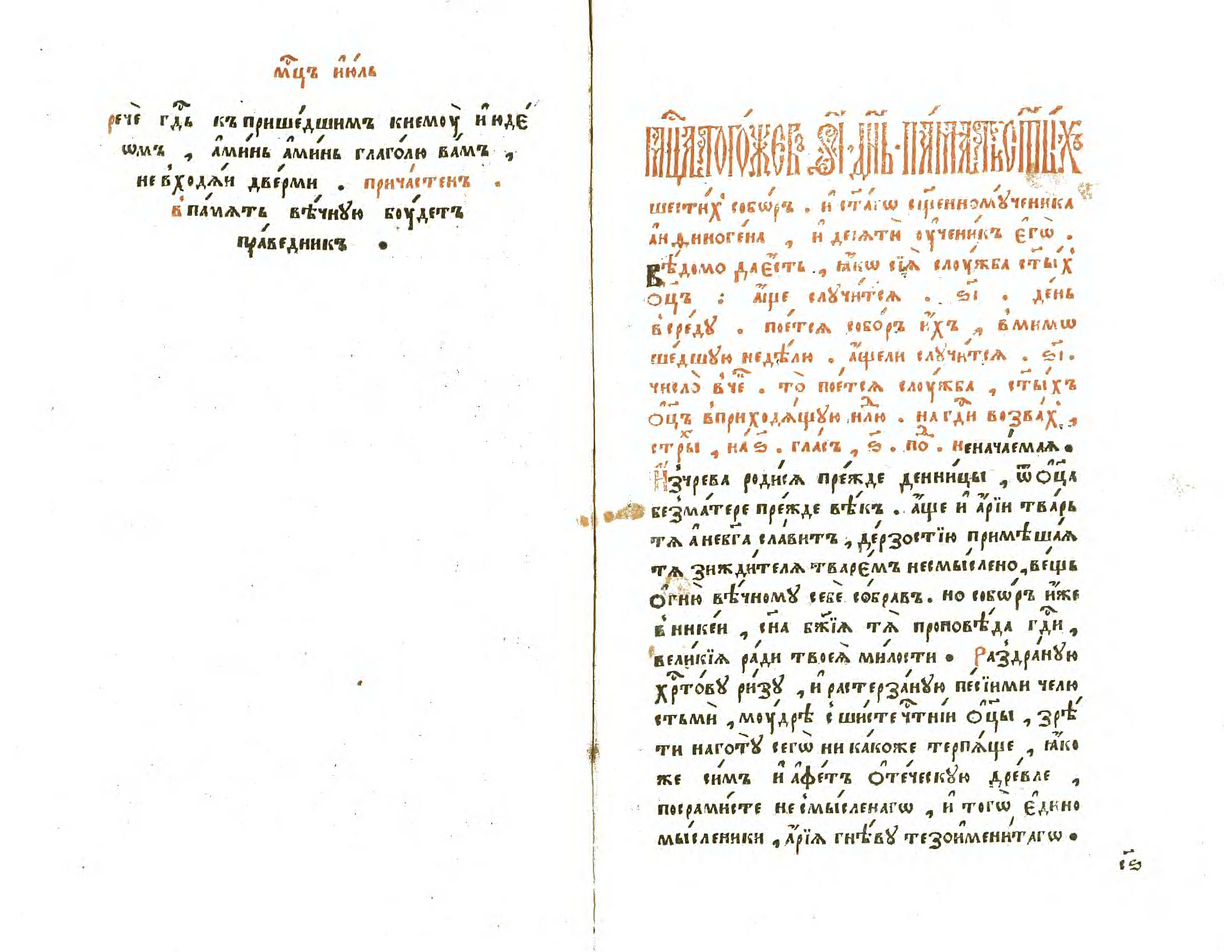 мⷭ҇цъ і҆ю́ль
речѐ гдⷭ҇ь къ прише́дшимъ кнемоу̀ и҆ юде́
ѡмъ , а҆ми́нь а҆ми́нь глаголю ва́мъ ,
не вхо́дѧи две́рми . прича́стенъ .
в па́мѧть вѣ́чную боу́детъ
пра́ведникъ .
мⷭ҇ца того́жев ѕ҃і · дн҃ь · па́мѧть ст҃ы́хъ
шести́х собѡ́ръ . и҆ ст҃а́гѡ сщ҃енномꙋ́ченика
а҆ндиноге́на , и҆ десѧти оу҆ченикъ є҆гѡ̀ .
вѣ́домо дае҆́сть , ꙗ҆́кѡ сїѧ̀ слоу́жба ст҃ы́х
ѻ҆ц҃ъ : а҆́ще слꙋчи́тсѧ . ѕ҃і . де́нь
в сре́дꙋ . пое́тсѧ собо́ръ и҆́хъ , в мимѡ
ше́дшую недѣ́лю . а҆́щели слꙋчи́тсѧ . ѕ҃і .
число̀ в чеⷮ . то̀ пое́тсѧ слоу́жба , ст҃ы́хъ
ѻ҆ц҃ъ в приходѧ́щꙋю нлⷣю . на гдⷭ҇и возва́х ,
стⷯры , на ѕ҃ . гла́съ , ѕ҃ . поⷣ . неначае́маѧ .
И҆зчре́ва роди́сѧ пре́жде денни́цы , ѿ ѻ҆ц҃а
без ма́тере пре́жде вѣ́къ . а҆́ще и҆ а҆́рїи тва́рь
тѧ а҆ не бг҃а сла́витъ , де́рзостїю примѣша́ѧ
тѧ̀ зижди́телѧ тваре́мъ несмы́слено , ве́щь
ѻ҆гню̀ вѣ́чномꙋ себѐ собра́въ . но собѡ́ръ и҆́же
в нике́и , сн҃а бж҃їѧ тѧ̀ проповѣ́да гдⷭ҇и ,
вели́кїѧ ра́ди твоеѧ̀ ми́лости . Раздра́нꙋю
хрⷭ҇то́вꙋ ри́зꙋ , и҆ растерза́нꙋю пе́сїими челю
стьмѝ , моу́дрѣ сшисте чтⷭ҇нїи ѻ҆ц҃ы , зрѣ́
ти наготꙋ̀ сегѡ̀ ни ка́коже терпѧ́ще , ꙗ҆́ко
же си́мъ и҆ а҆фе́тъ ѻ҆те́ческꙋю дре́вле ,
посрами́сте несмы́сленагѡ , и҆ тогѡ̀ є҆ди́но
мы́сленики , а҆́рїѧ гнѣ́вꙋ тезоимени́тагѡ .
ѕ҃і